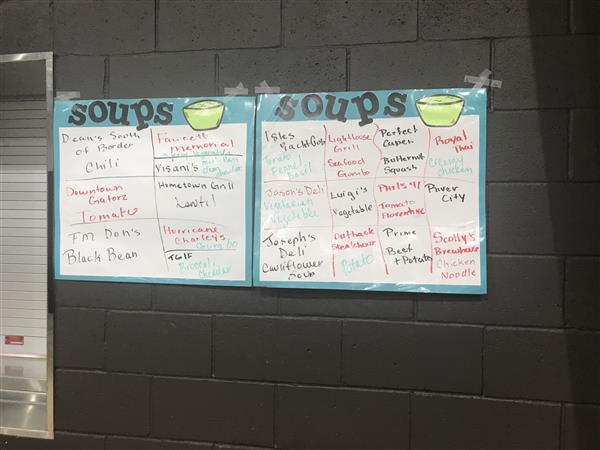 soups
Dean's South
of Border
Chili
Fawcett
memorial
Visani's
Downtown
Gatorz
Tomato
Hometown Grill
Lentil
Fm Don's
Black Bean
Hurricane
Charleys
Gumbo
TGIF
Broccoli
Cheddar
soups
Isles
Yacht Club
Tomato
Fennel
Basil
Lighthouse
Grill
Seafood
Gumbo
Perfect
Caper
Butternut
Squash
Royal
Thai
Creamy
Chicken
Jason's Deli
Vegetarian
Vegetable
Luigi's
Vegetable
Phils 41
Tomato
Florentine
River
City
Joseph's
Deli
Cauliflower
Soup
Outback
Steakhouse
Potato
Prime
Beef
+ Potato
Scotty's
Brewhouse
Chicken
Noodle